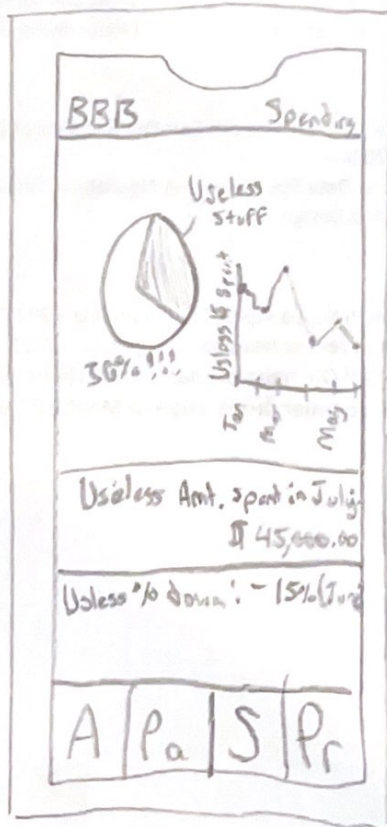 BBB Spending
Useless
Stuff
30%!!!
Usless $ Spent
Jan
May
Useless Amt. Spent in July
$ 45,000.00
Usless % down: - 15% (June
A Pa S Pr